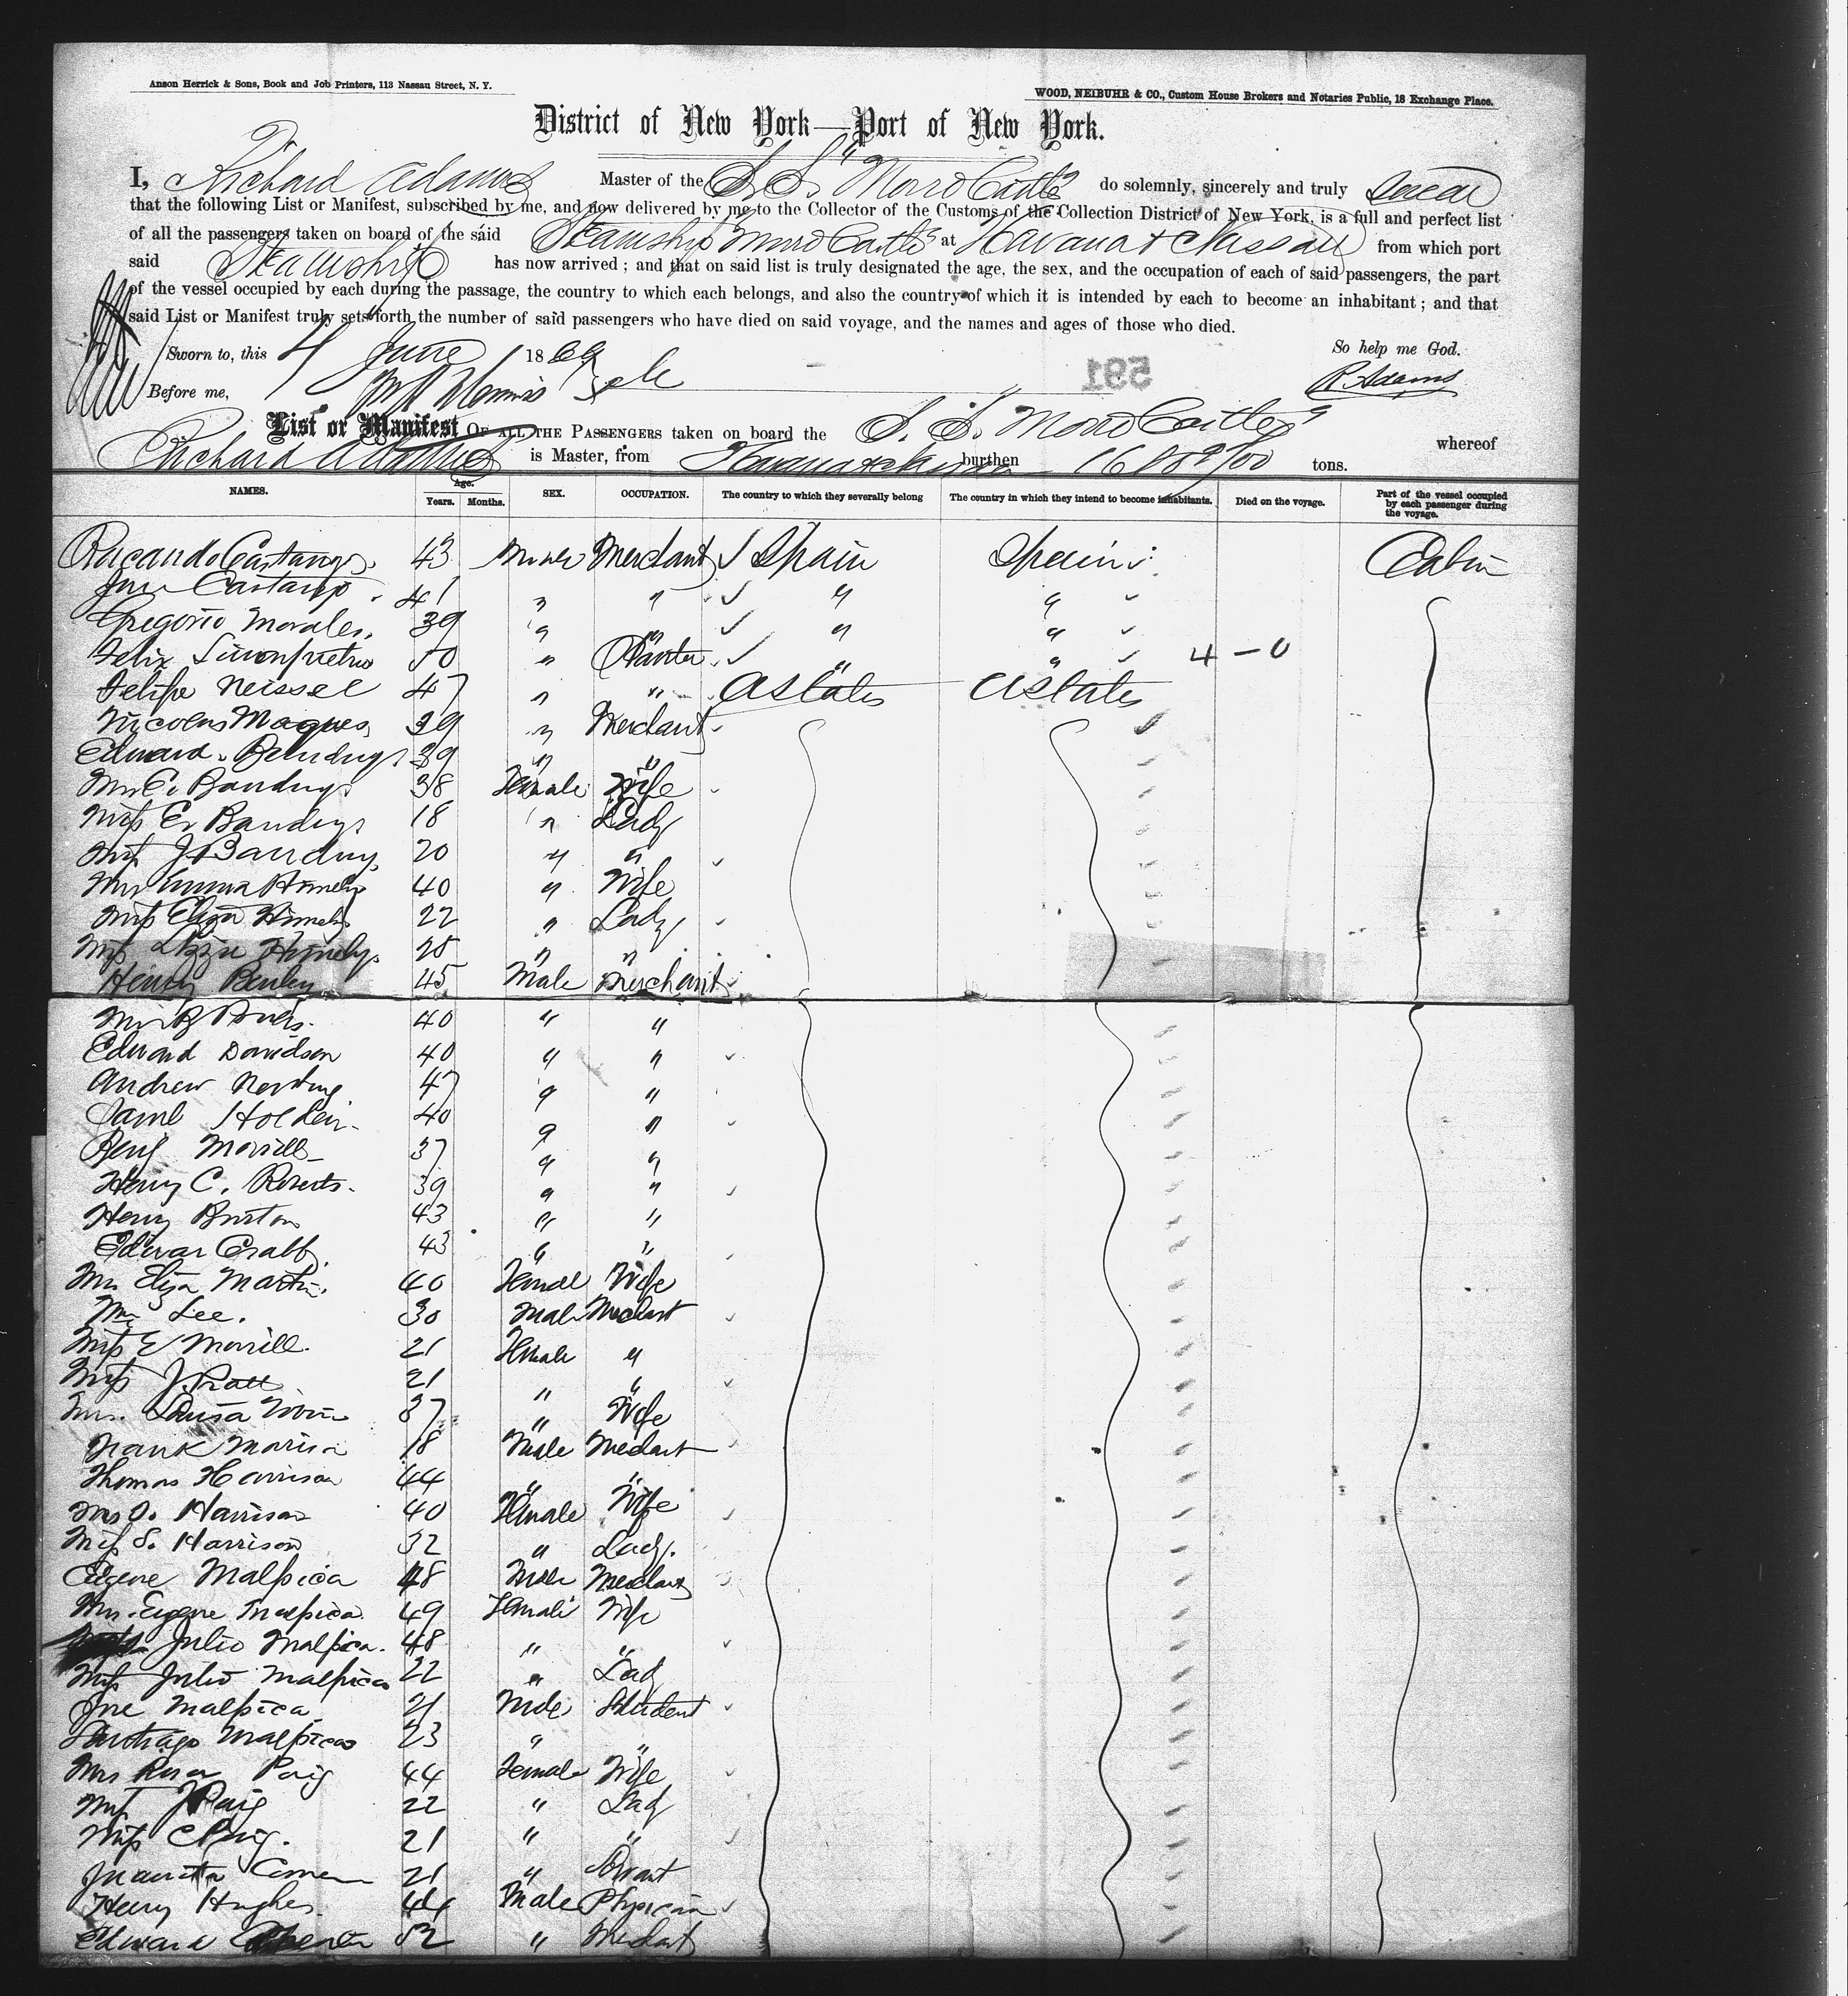 Anson Herrick & Sons, Book and Job Printers, 113 Nassau Street, N. Y.
WOOD, NEIBUHR & CO., Custom House Brokers and Notaries Public, 18 Exchange Place.
District of New York—Port of New York.
I, Richard Adams Master of the S. S. "Morro Castle" do solemnly, sincerely and truly swear
that the following List or Manifest, subscribed by me, and now delivered by me to the Collector of the Customs of the Collection District of New York, is a full and perfect list
of all the passengers taken on board of the said Steamship "Morro Castle" at Havana & Nassau from which port
said Steamship has now arrived ; and that on said list is truly designated the age, the sex, and the occupation of each of said passengers, the part
of the vessel occupied by each during the passage, the country to which each belongs, and also the country of which it is intended by each to become an inhabitant ; and that
said List or Manifest truly sets forth the number of said passengers who have died on said voyage, and the names and ages of those who died.
Sworn to, this 4 June 1869 So help me God.
Before me, R Adams
591
List or Manifest OF ALL THE PASSENGERS taken on board the S. S. "Morro Castle" whereof
Richard Adams is Master, from Havana & Nassau burthen tons.
NAMES. Age. Years. Months. SEX. OCCUPATION. The country to which they severally belong The country in which they intend to become inhabitants. Died on the voyage. Part of the vessel occupied by each passenger during the voyage.
43 Male Merchant ✓ Spain Spain Cabin
Castango 41 " " ✓ " "
Gregorio Morales. 39 " " ✓ " "
Felix 50 " Planter ✓ " " 4 - 0
Felipe Neissel 47 " " U States U States
Nicolas 39 " Merchant
Edward 39 " "
Mrs E. 38 Female Wife
Miss E. 18 " Lady
Miss J 20 " "
Mrs Emma 40 " Wife
Miss Eliza 22 " Lady
Miss 28 " "
Henry 45 Male Merchant
40 " "
Edward Davidson 40 " "
Andrew 47 " "
Saml Holden 40 " "
Benj Morrill 37 " "
Henry C. Roberts. 39 " "
Henry Burton 43 " "
Edwar Crabb 43 " "
Mrs Eliza Martin. 40 Female Wife
Mr Lee. 30 Male Merchant
Miss E Morrill. 21 Female "
Miss J. Pratt 21 " "
Mrs. Louisa 37 " Wife
Frank 18 Male Merchant
Thomas Harrison 44 " "
Mrs O. Harrison 40 Female Wife
Miss S. Harrison 32 " Lady.
Eugene Malpica 48 Male Merchant
Mrs. Eugene Malpica 49 Female Wife
Julio Malpica. 48 " "
Miss Julio Malpica 22 " Lady
Jne Malpica 21 Male Student
Santiago Malpica 23 " "
Mrs Rosa Puig 44 Female Wife
Miss J Puig 22 " Lady
Miss C Puig. 21 " "
Juanita 21 " Servant
Henry Hughes. 44 Male Physician
Edward 52 " Merchant